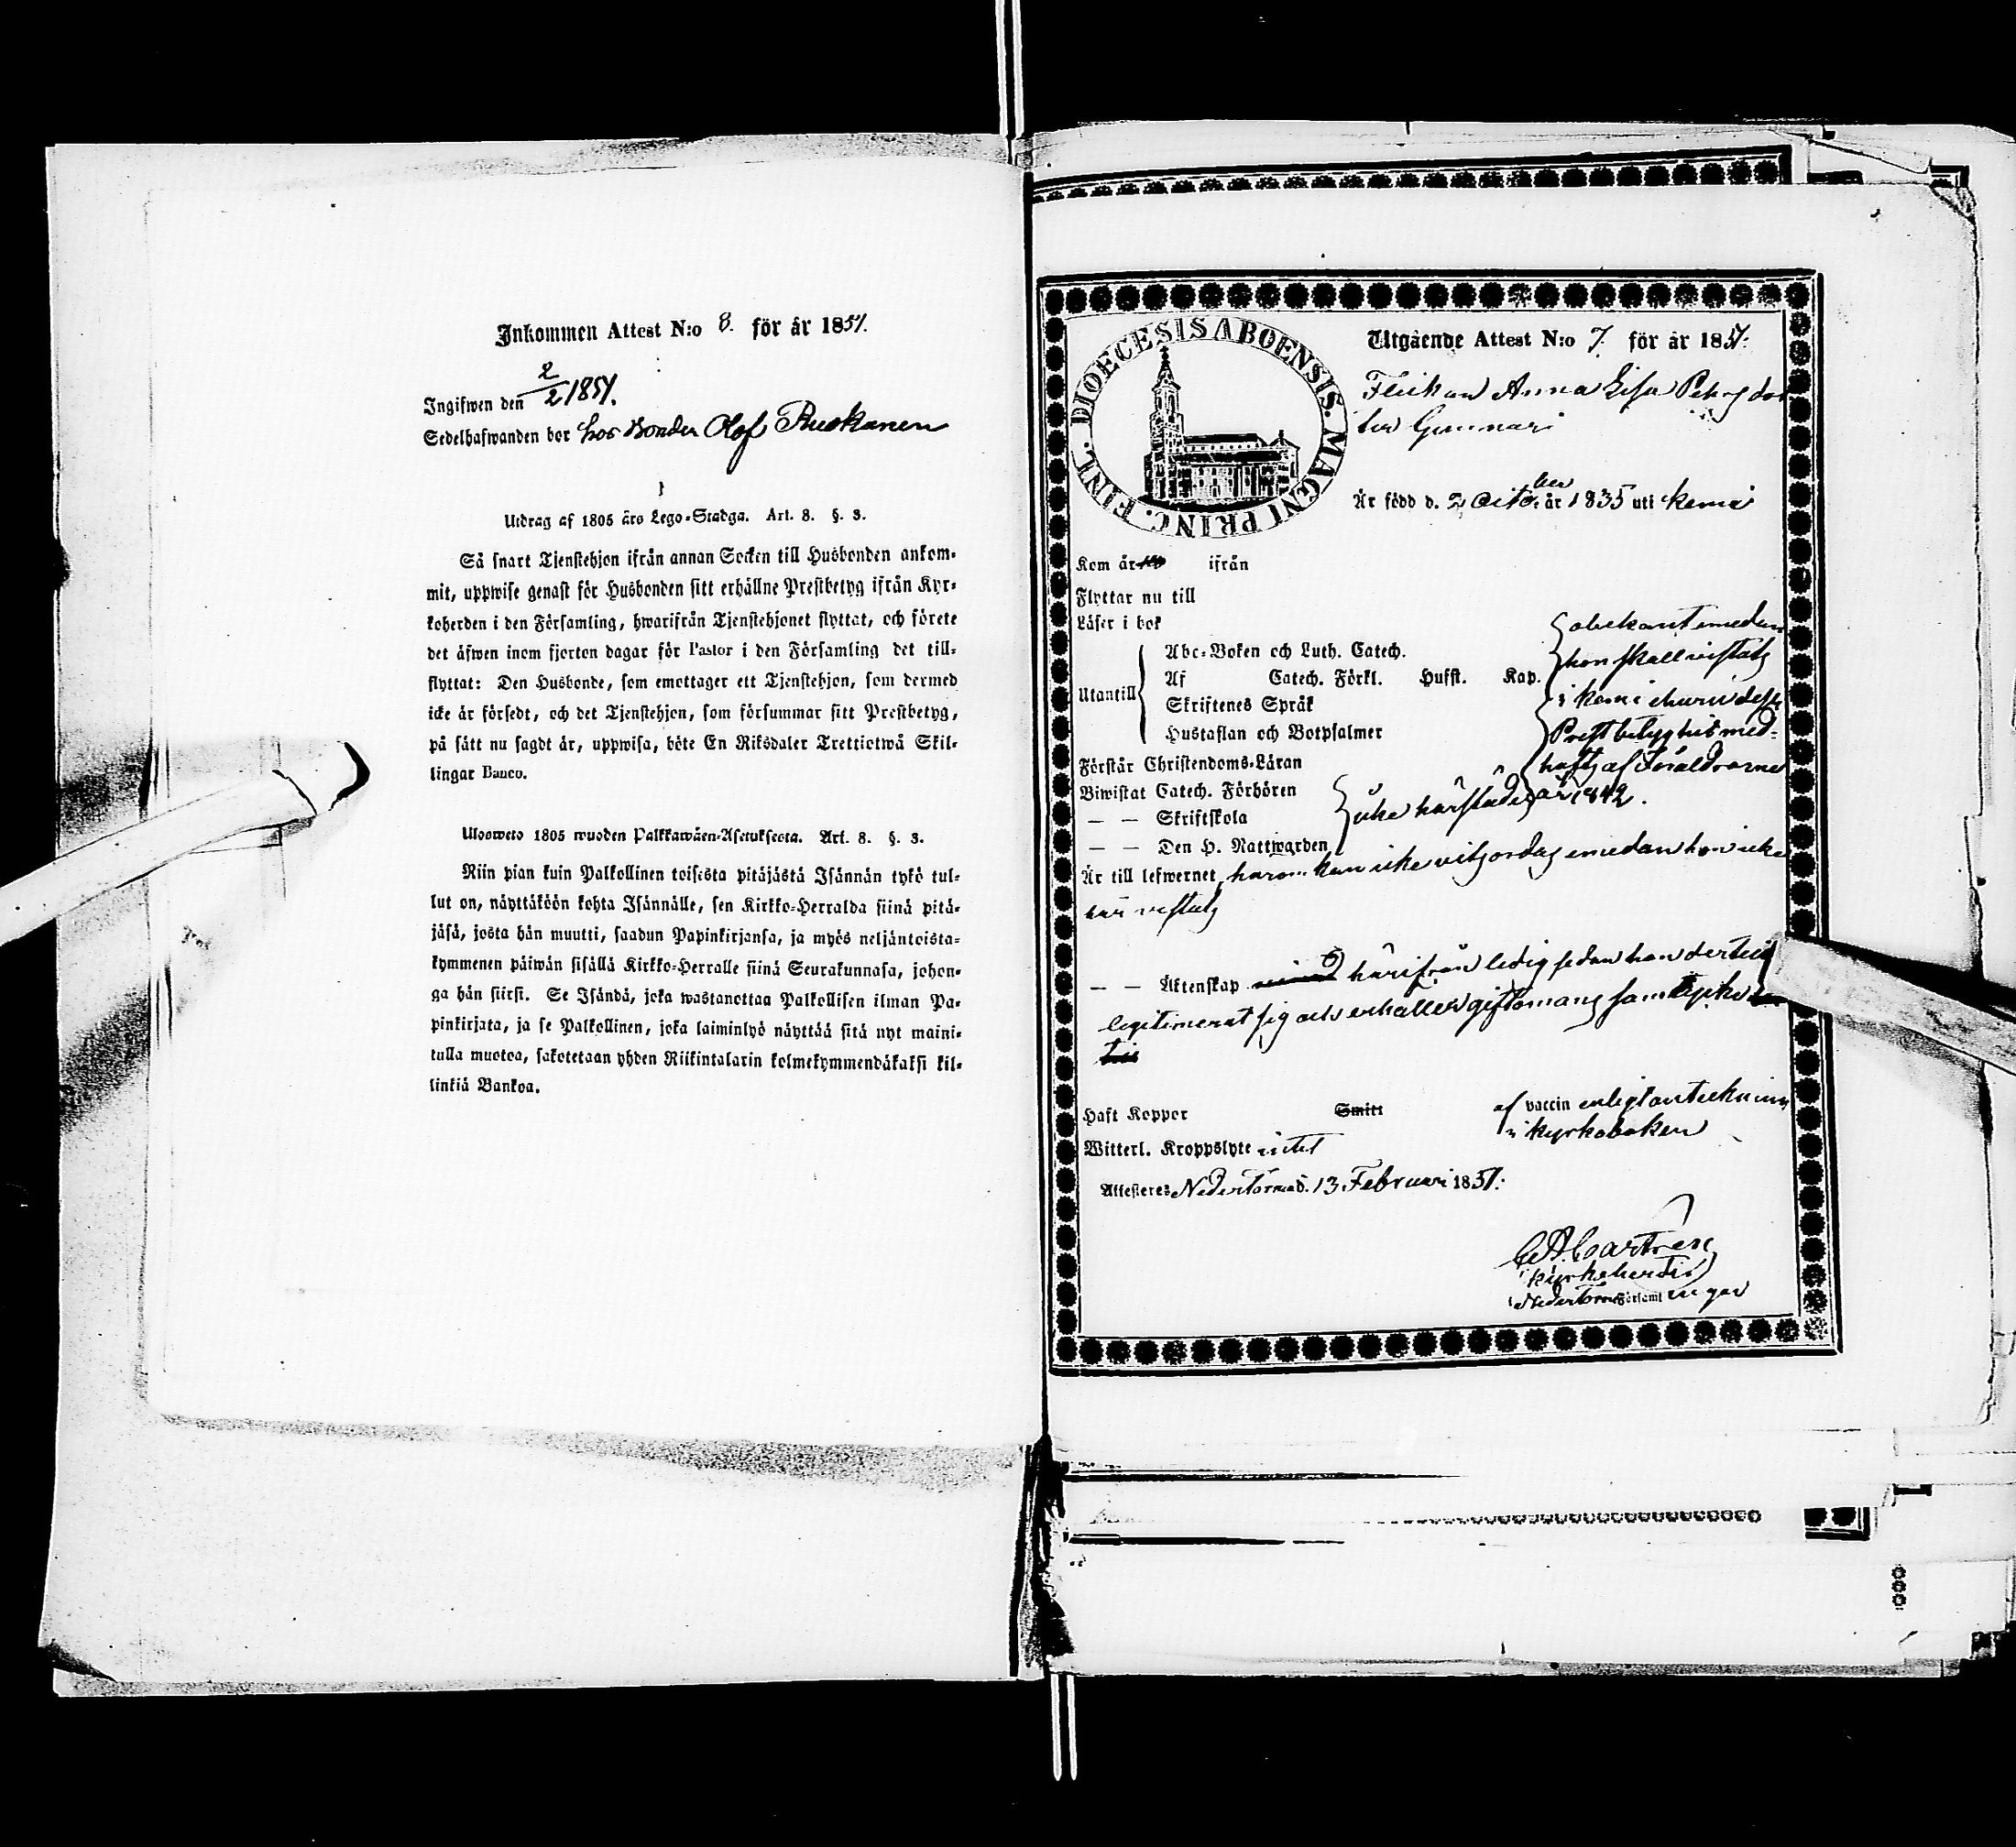 Inkommen Attest N:o 8. för år 1851.
Ingifwen den 2/2 1851.
Sedelhafwanden bor hos Bonden Olof Ruokanen
Utdrag af 1805 års Lego-Stadga. Art. 8. §. 3.
Så snart Tjenstehjon ifrån annan Socken till Husbonden ankom-
mit, uppwise genast för Husbonden sitt erhållne Prestbetyg ifrån Kyr-
koherden i den Församling, hwarifrån Tjenstehjonet flyttat, och förete
det äfwen inom fjorton dagar för Pastor i den Församling det till-
flyttat: Den Husbonde, som emottager ett Tjenstehjon, som dermed
icke är försedt, och det Tjenstehjon, som försummar sitt Prestbetyg,
på sätt nu sagdt är, uppwisa, böte En Riksdaler Trettiotwå Skil-
lingar Banco.
Ulosweto 1805 wuoden Palkkawäen-Asetuksesta. Art. 8. §. 3.
Niin pian kuin Palkollinen toisesta pitäjästä Isännän tykö tul-
lut on, näyttäköön kohta Isännälle, sen Kirkko-Herralda siinä pitä-
jäsä, josta hän muutti, saadun Papinkirjansa, ja myös neljäntoista-
kymmenen päiwän sisällä Kirkko-Herralle siinä Seurakunnasa, johon-
ga hän siirsi. Se Isändä, joka wastanottaa Palkollisen ilman Pa-
pinkirjata, ja se Palkollinen, joka laiminlyö näyttää sitä nyt maini-
tulla muotoa, sakotetaan yhden Riikintalarin kolmekymmendäkaksi kil-
linkiä Bankoa.
DIOECESIS ABOENSIS. MAGNI PRINC. FINL.
Utgående Attest N:o 7. för år 1851.
Flickan Anna Lisa Pehrsdot
ter
Är född d. 2 Octo ber år 1835 uti Kemi
Kom år ifrån
Flyttar nu till
Läser i bok
Utantill
Abc-Boken och Luth. Catech.
Af Catech. Förkl. Hufst. Kap.
Skriftenes Språk
Hustaflan och Botpsalmer
obekant emedan
hon skall vistats
i Kemi churu dess
Prestbetyg blif med-
haft af Föräldrarne
år 1842.
Förstår Christendoms-Läran
Biwistat Catech. Förhören
— — Skriftskola
— — Den H. Nattwarden
icke härstädes
Är till lefwernet, harom kan icke vitsordas emedan hon icke
här vistats
— — Äktenskap härifrån ledig sedan hon dertill
legitimerat sig och erhåller giftomans samtycke
Haft Koppor Smitt af vaccin enligt anteckning
i kyrkoboken
Witterl. Kroppslyte intet
Attesteres Nedertorneå d. 13 Februari 1851.
Kyrkoherde
i Nedertorneå Församl ingar